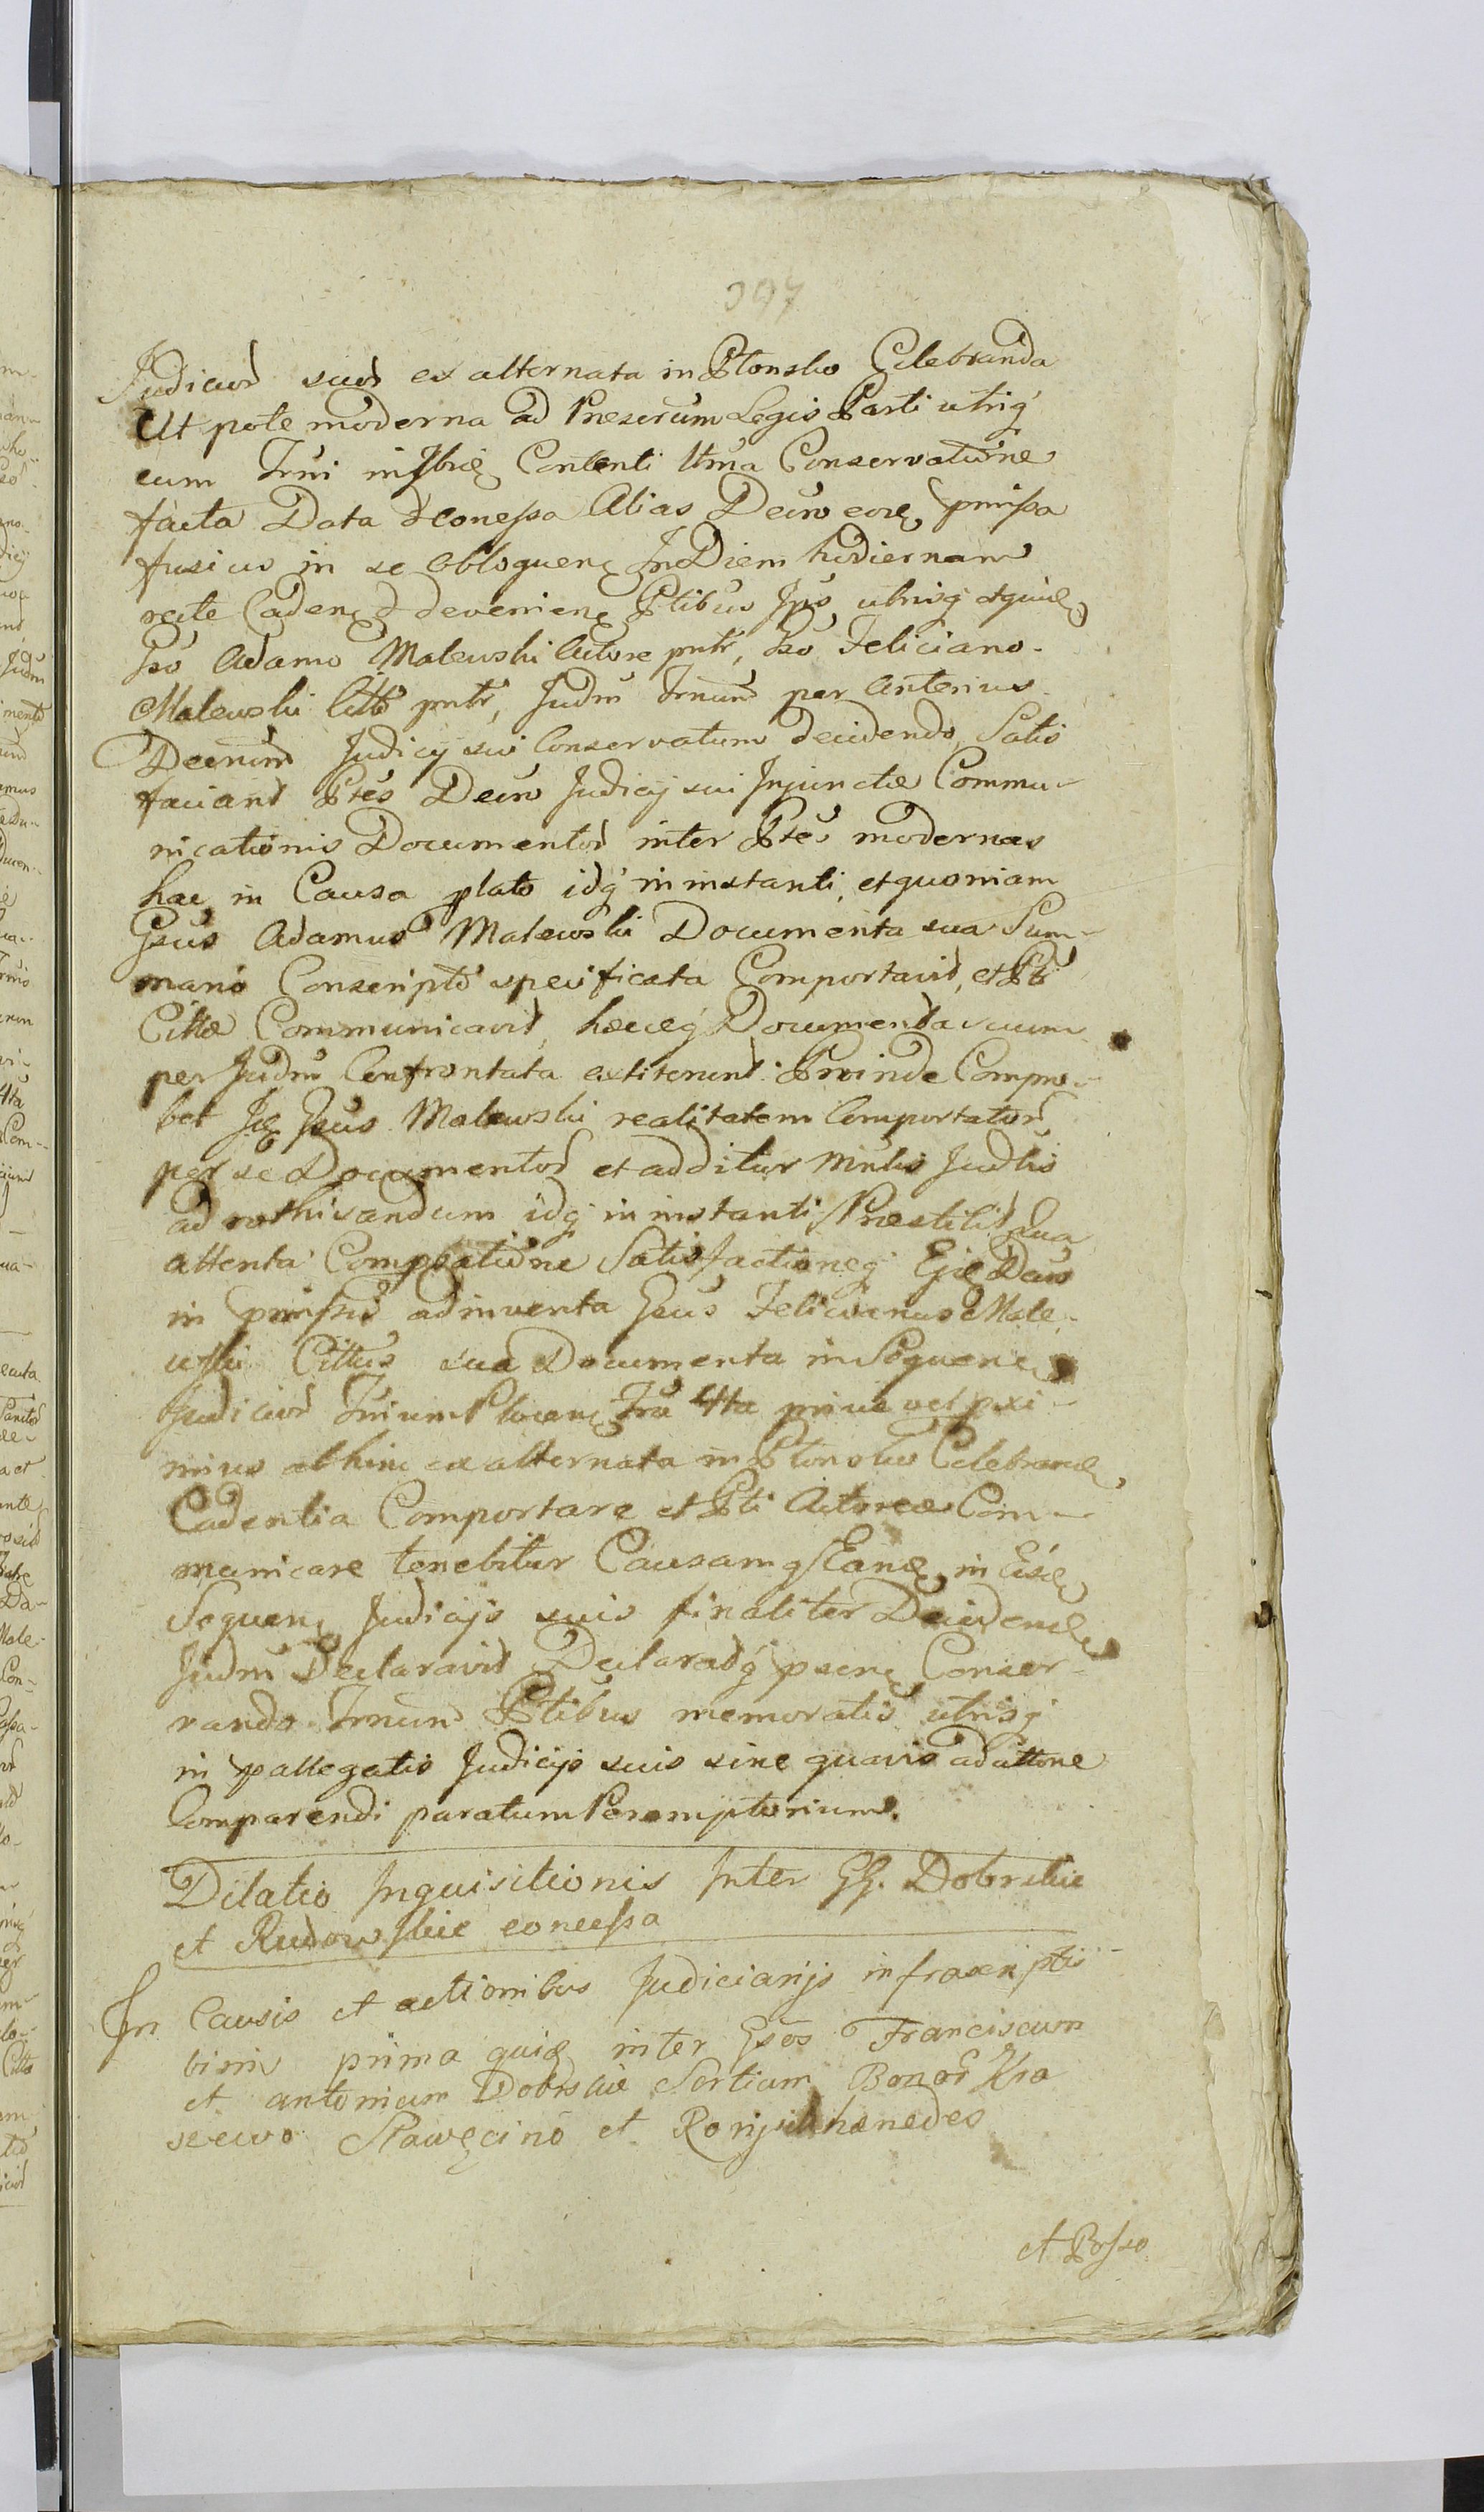 397
Judicior̃ suor̃ ex alternata in Płonsko Celebranda
Ut pote moderna ad Prescrum Legis Parti utriq́
cum Trni Contenti Conservatione
facta Data Alias Decro pmissa
fusius in se obloquenę In Diem hodiernam
recte Cadenę & devenienę Ptibus Ipis utrisq́
Gso Adamo Malewski Actore pntr, Gso Feliciano
Malewski Citto pntr, Judm Trnum per Anterius
Decrum Judicij sui Conservatum decidendo, Satis
faciant Ptes Decro Judicij sui Injunctæ Commu-
nicationis Documentor̃ inter Ptes modernas
hac in Causa plato idq́ in instanti, et quoniam
Gsus Adamus Malewski Documenta sua Sum-
mario Conscripto specificata Comportavit, et Pti
Cittæ Communicavit, hæceq́ Documenta suum
per Judm Confrontata extiterunt: Proinde Compro-
bet Gsus Malewski realitatem Comportator̃
per se Documentor̃ et additur Mintis Judlis
ad rothisandum idq́ in instanti Præstitit Qua
attenta Comprobatione Satisfactioneq́ Eję Decro
in pmissis adinventa Gsus Felicianus Male-
wski Cittus sua Documenta in Sequenę
Judicior̃ Trnium Plocenę Tra 4ta prius vel pxi-
mius abhinc ex alternata in Płonsko Celebrandę
Cadentia Comportare et Pti Actoreæ Com-
municare tenebitur Causamq́ Eandę in Eisdę
Sequenę Judicijs suis finaliter Decidendę
Judm Declaravit Declaratq́ psenę Conser-
vando Trnum Ptibus memoratis utrisq́
in pallegatis Judicijs suis sine quavis adcittone
Comparendi paratum Peremptorium.
Dilatio Inquisitionis Inter GG. Dobrskie
et Rudowskie concessa
In Causis et actionibus Judiciarijs infrascriptis
binis prima quidę inter Gsos Franciscum
et Antonium Dobrskie Sortium Bonor̃ Kra
szewo Sławęcino et hæredes
et Posso